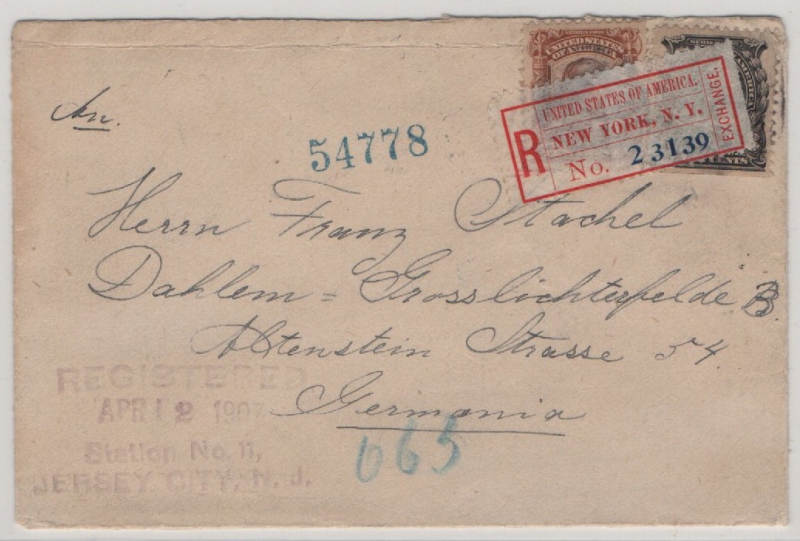 UNITED STATES
UNITED STATES OF AMERICA.
R NEW YORK, N. Y. EXCHANGE.
No. 23139
CENTS
An.
54778
Herrn Franz Stachel
Dahlem = Grosslichterfelde B.
Altenstein Strasse 54
Germania
REGISTERED
APR 12 1907
Station No. 11,
JERSEY CITY, N. J.
065